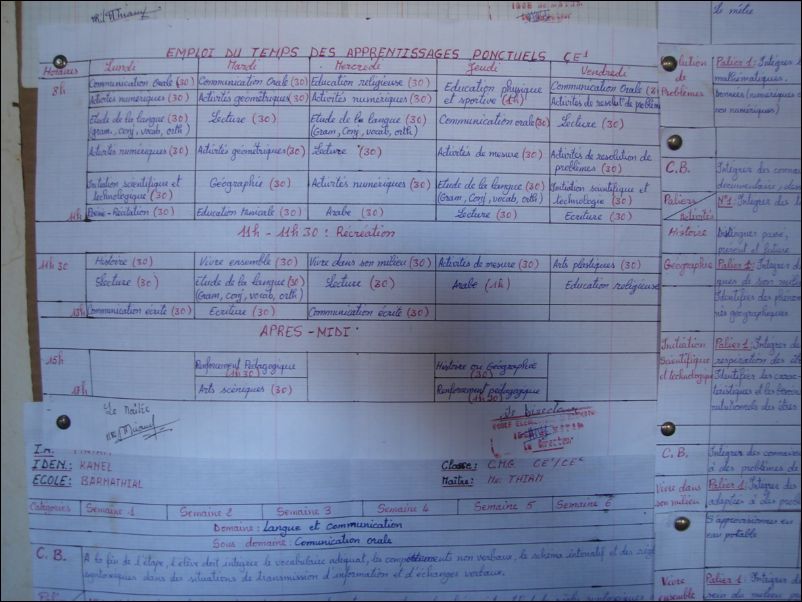 EMPLOI DU TEMPS DES APPRENTISSAGES PONCTUELS CE1
Horaires Lundi Mardi Mercredi Jeudi Vendredi
8h Communication Orale (30) Communication Orale (30) Education religieuse (30) Education physique et sportive (1h) Communication Orale
Activités numériques (30) Activités géométriques (30) Activités numériques (30) Activités de resolut° de problèmes
Etude de la langue (30) (gram, conj, vocab, orth) Lecture (30) Etude de la langue (30) (Gram, Conj, vocab, orth) Communication orale (30) Lecture (30)
Activités numériques (30) Activités géométriques (30) Lecture (30) Activités de mesure (30) Activités de resolution de problèmes (30)
Initiation scientifique et technologique (30) Géographie (30) Activités numériques (30) Etude de la langue (30) (Gram, Conj, vocab, orth) Initiation scientifique et technologie (30)
11h Poésie - Récitation (30) Education musicale (30) Arabe (30) Lecture (30) Ecriture (30)
11h - 11h 30 : Récréation
11h 30 Histoire (30) Vivre ensemble (30) Vivre dans son milieu (30) Activités de mesure (30) Arts plastiques (30)
Lecture (30) Etude de la langue (30) (Gram, Conj, vocab, orth) Lecture (30) Arabe (1h) Education religieuse
13h Communication ecrite (30) Ecriture (30) Communication ecrite (30)
APRES - MIDI
15h Renforcement Pédagogique (1h 30) Histoire ou Géographie (30)
17h Arts scéniques (30) Renforcement pédagogique (1h 30)
Le Maître
Le Directeur
IDEN: KANEL Classe: C.M.G CE1/CE2
ECOLE: BARMATHIAL Maître: Mr THIAM
Catégories Semaine 1 Semaine 2 Semaine 3 Semaine 4 Semaine 5 Semaine 6
Domaine : Langue et communication
Sous domaine : Comunication orale
C. B. A la fin de l'étape, l'élève doit integrer le vocabulaire adequat, les comportements non verbaux, le schéma intonatif et des
syntaxiques dans des situations de transmission d'information et d'échanges verbaux.
Le mètre
de Problèmes
Palier 1: Intégrer
mathématiques.
non numériques)
C.B. Intégrer des
Paliers
Activités
N°1: Intégrer des
Histoire Distinguer passé,
présent et
Géographie Palier 1: Intégrer
Identifier des
géographiques
Initiation Scientifique et technologique Palier 1: Intégrer
Identifier les
C. B. Intégrer des
à des problèmes de
Vivre dans son milieu Palier 1: Intégrer des
S'approvisionner en
eau potable
Vivre ensemble Palier 1: Intégrer